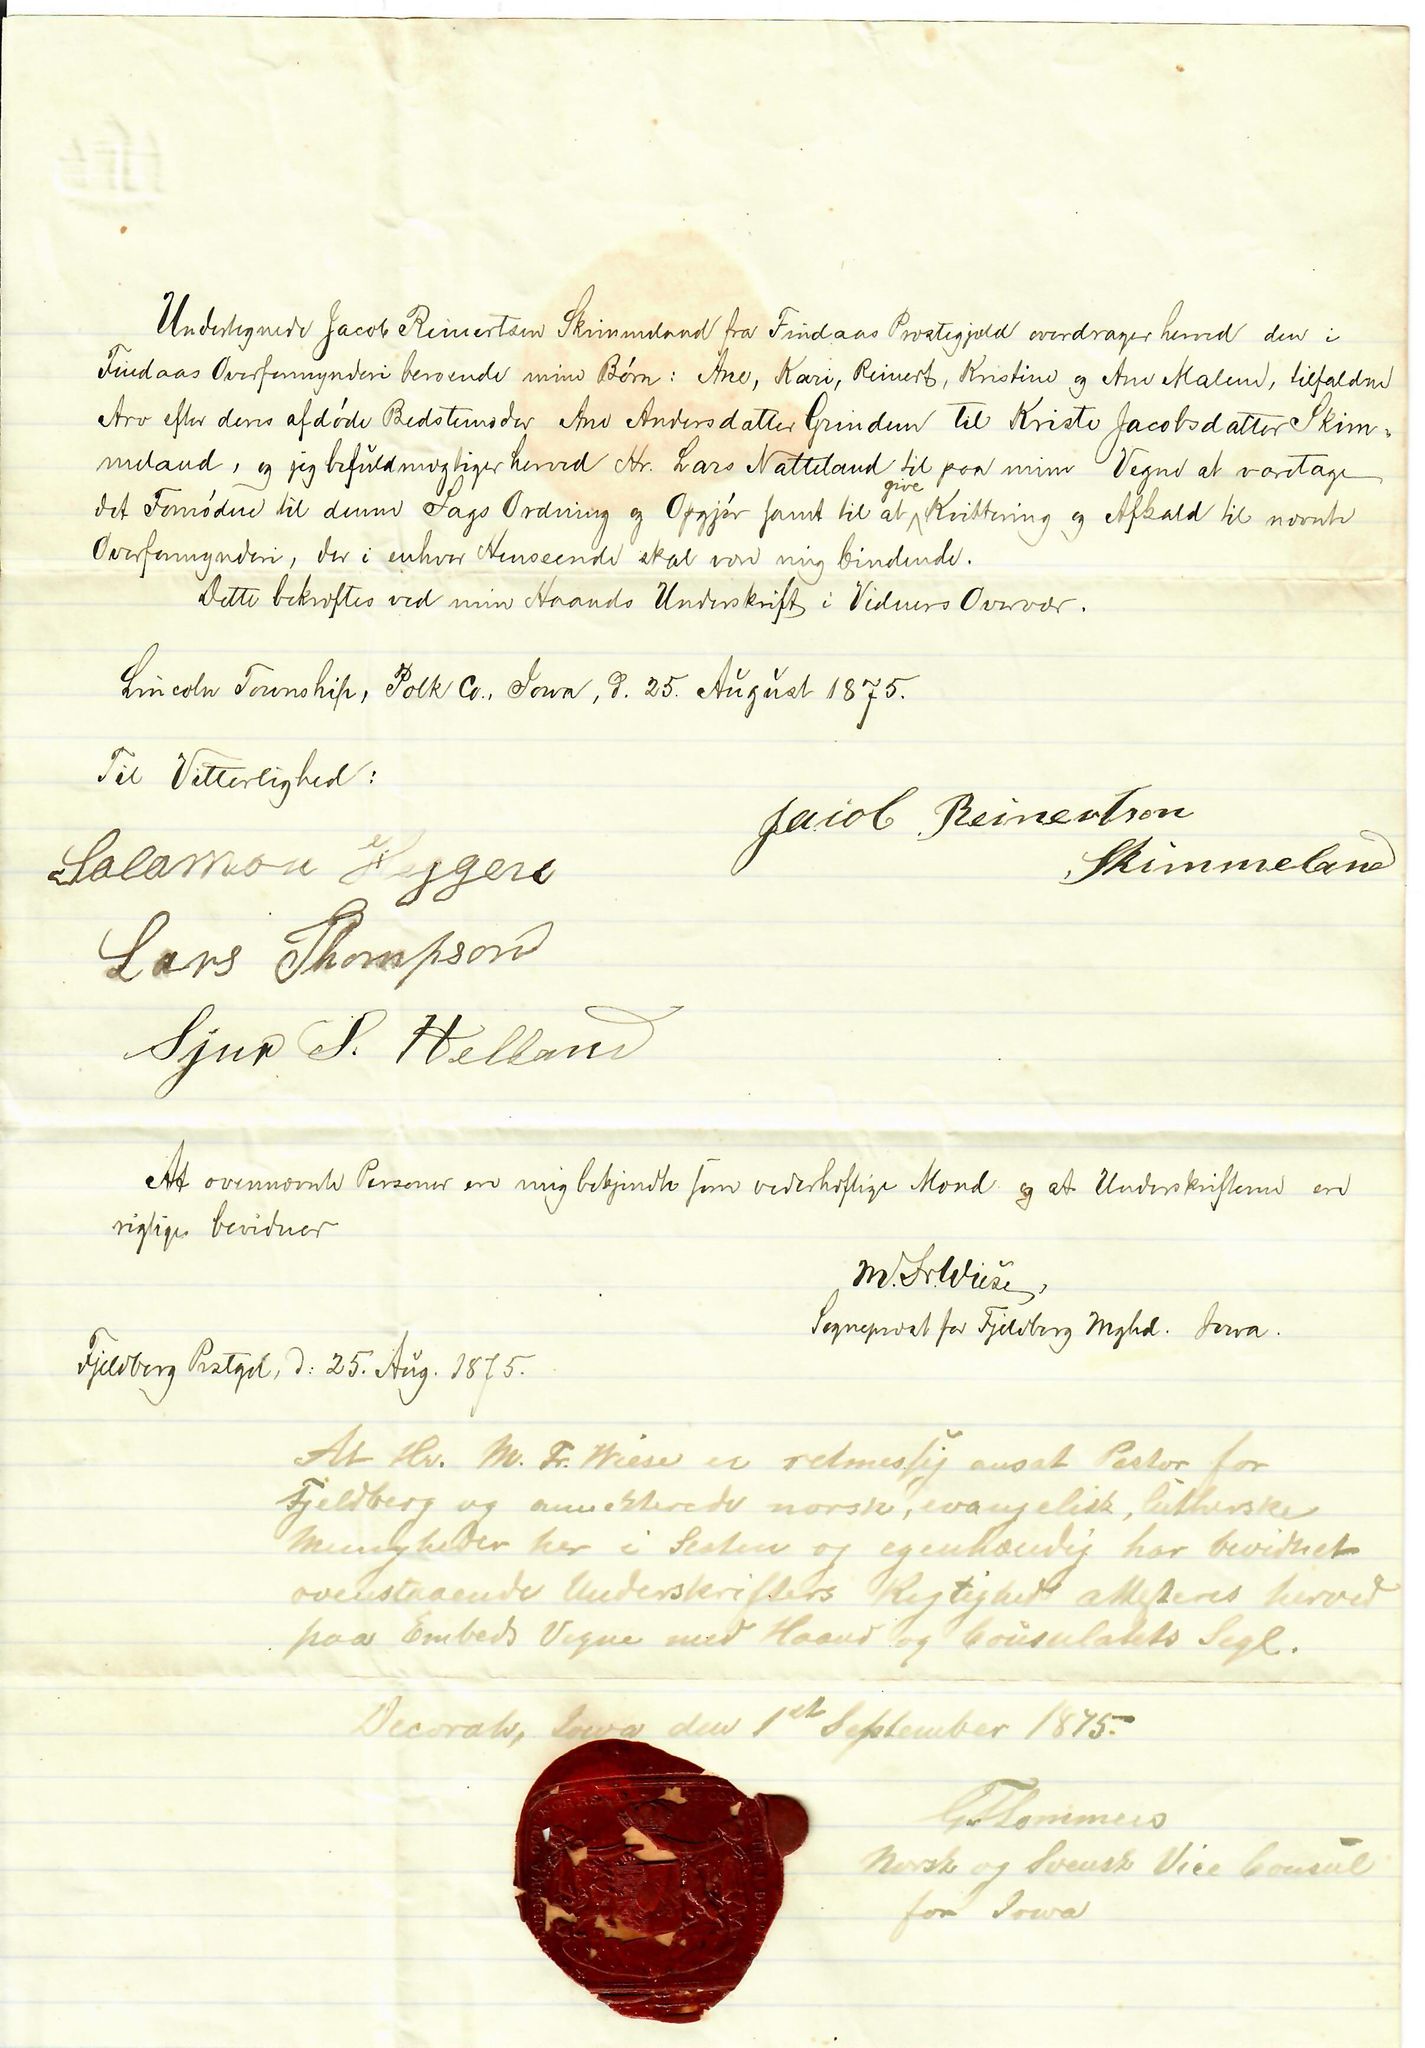 Undertegnede Jacob Reinertsen Skimmeland fra Findaas Prestegjæld overdrager herved den i
Findaas Overformynderi beroende mine Børn: Ane, Kari, Reinert, Kristine og Ane Malene, tilfaldne
Arv efter deres afdøde Bedstemoder Ane Andersdatter Grindem til Kriste Jacobsdatter Skim-
meland, og jeg befuldmægtiger herved Hr. Lars Natteland til paa mine Vegne at varetage
det Fornødne til denne Sags Ordning og Opgjør samt til at give Kvittering og Afkald til nævnte
Overformynderi, der i enhver Henseende skal være mig bindende.
Dette bekræftes ved min Haands Underskrift i Vidners Overvær.
Lincoln Township, Polk Co., Iowa, d. 25. August 1875.
Til Vitterlighed:
Jacob Reinertson
Skimmeland
Salamon Heggen
Lars Thompson
Sjur S. Helland
At ovennævnte Personer ere mig bekjendte som vederhæftige Mænd og at Underskrifterne ere
rigtige bevidner
M. Fr. Wiese,
Sogneprest for Fjeldberg Mghd. Iowa.
Fjeldberg Prstgd, d: 25. Aug. 1875.
At Hr. M. Fr. Wiese er retmessig ansat Pastor for
Fjeldberg og annekterede norsk, evangelisk, lutherske
Menigheder her i Staten og egenhændig har bevidnet
ovenstaaende Underskrifters Rigtighed attesteres herved
paa Embeds Vegne med Haand og Consulatets Segl.
Decorah, Iowa den 1st September 1875.
Norsk og Svensk Vice Consul
for Iowa